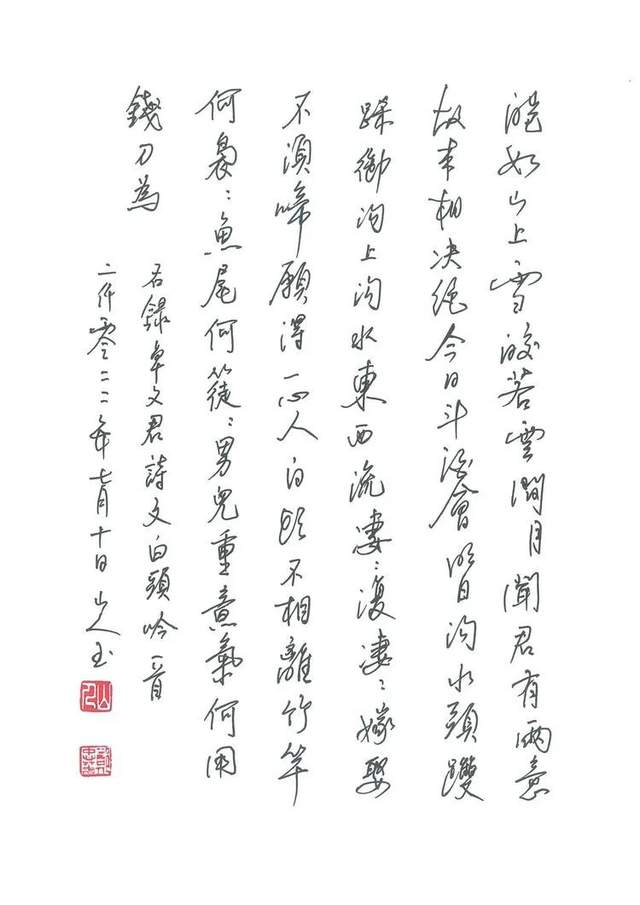 皚如山上雪皎若雲間月聞君有兩意
故來相決絕今日斗酒會明旦沟水頭躞
蹀御沟上沟水東西流凄:復凄:嫁娶
不須啼願得一心人白頭不相離竹竿
何裊:魚尾何簁:男兒重意氣何用
錢刀為
右錄卓文君詩文白頭吟一首
二仟零二二年七月十日山人玉
山人